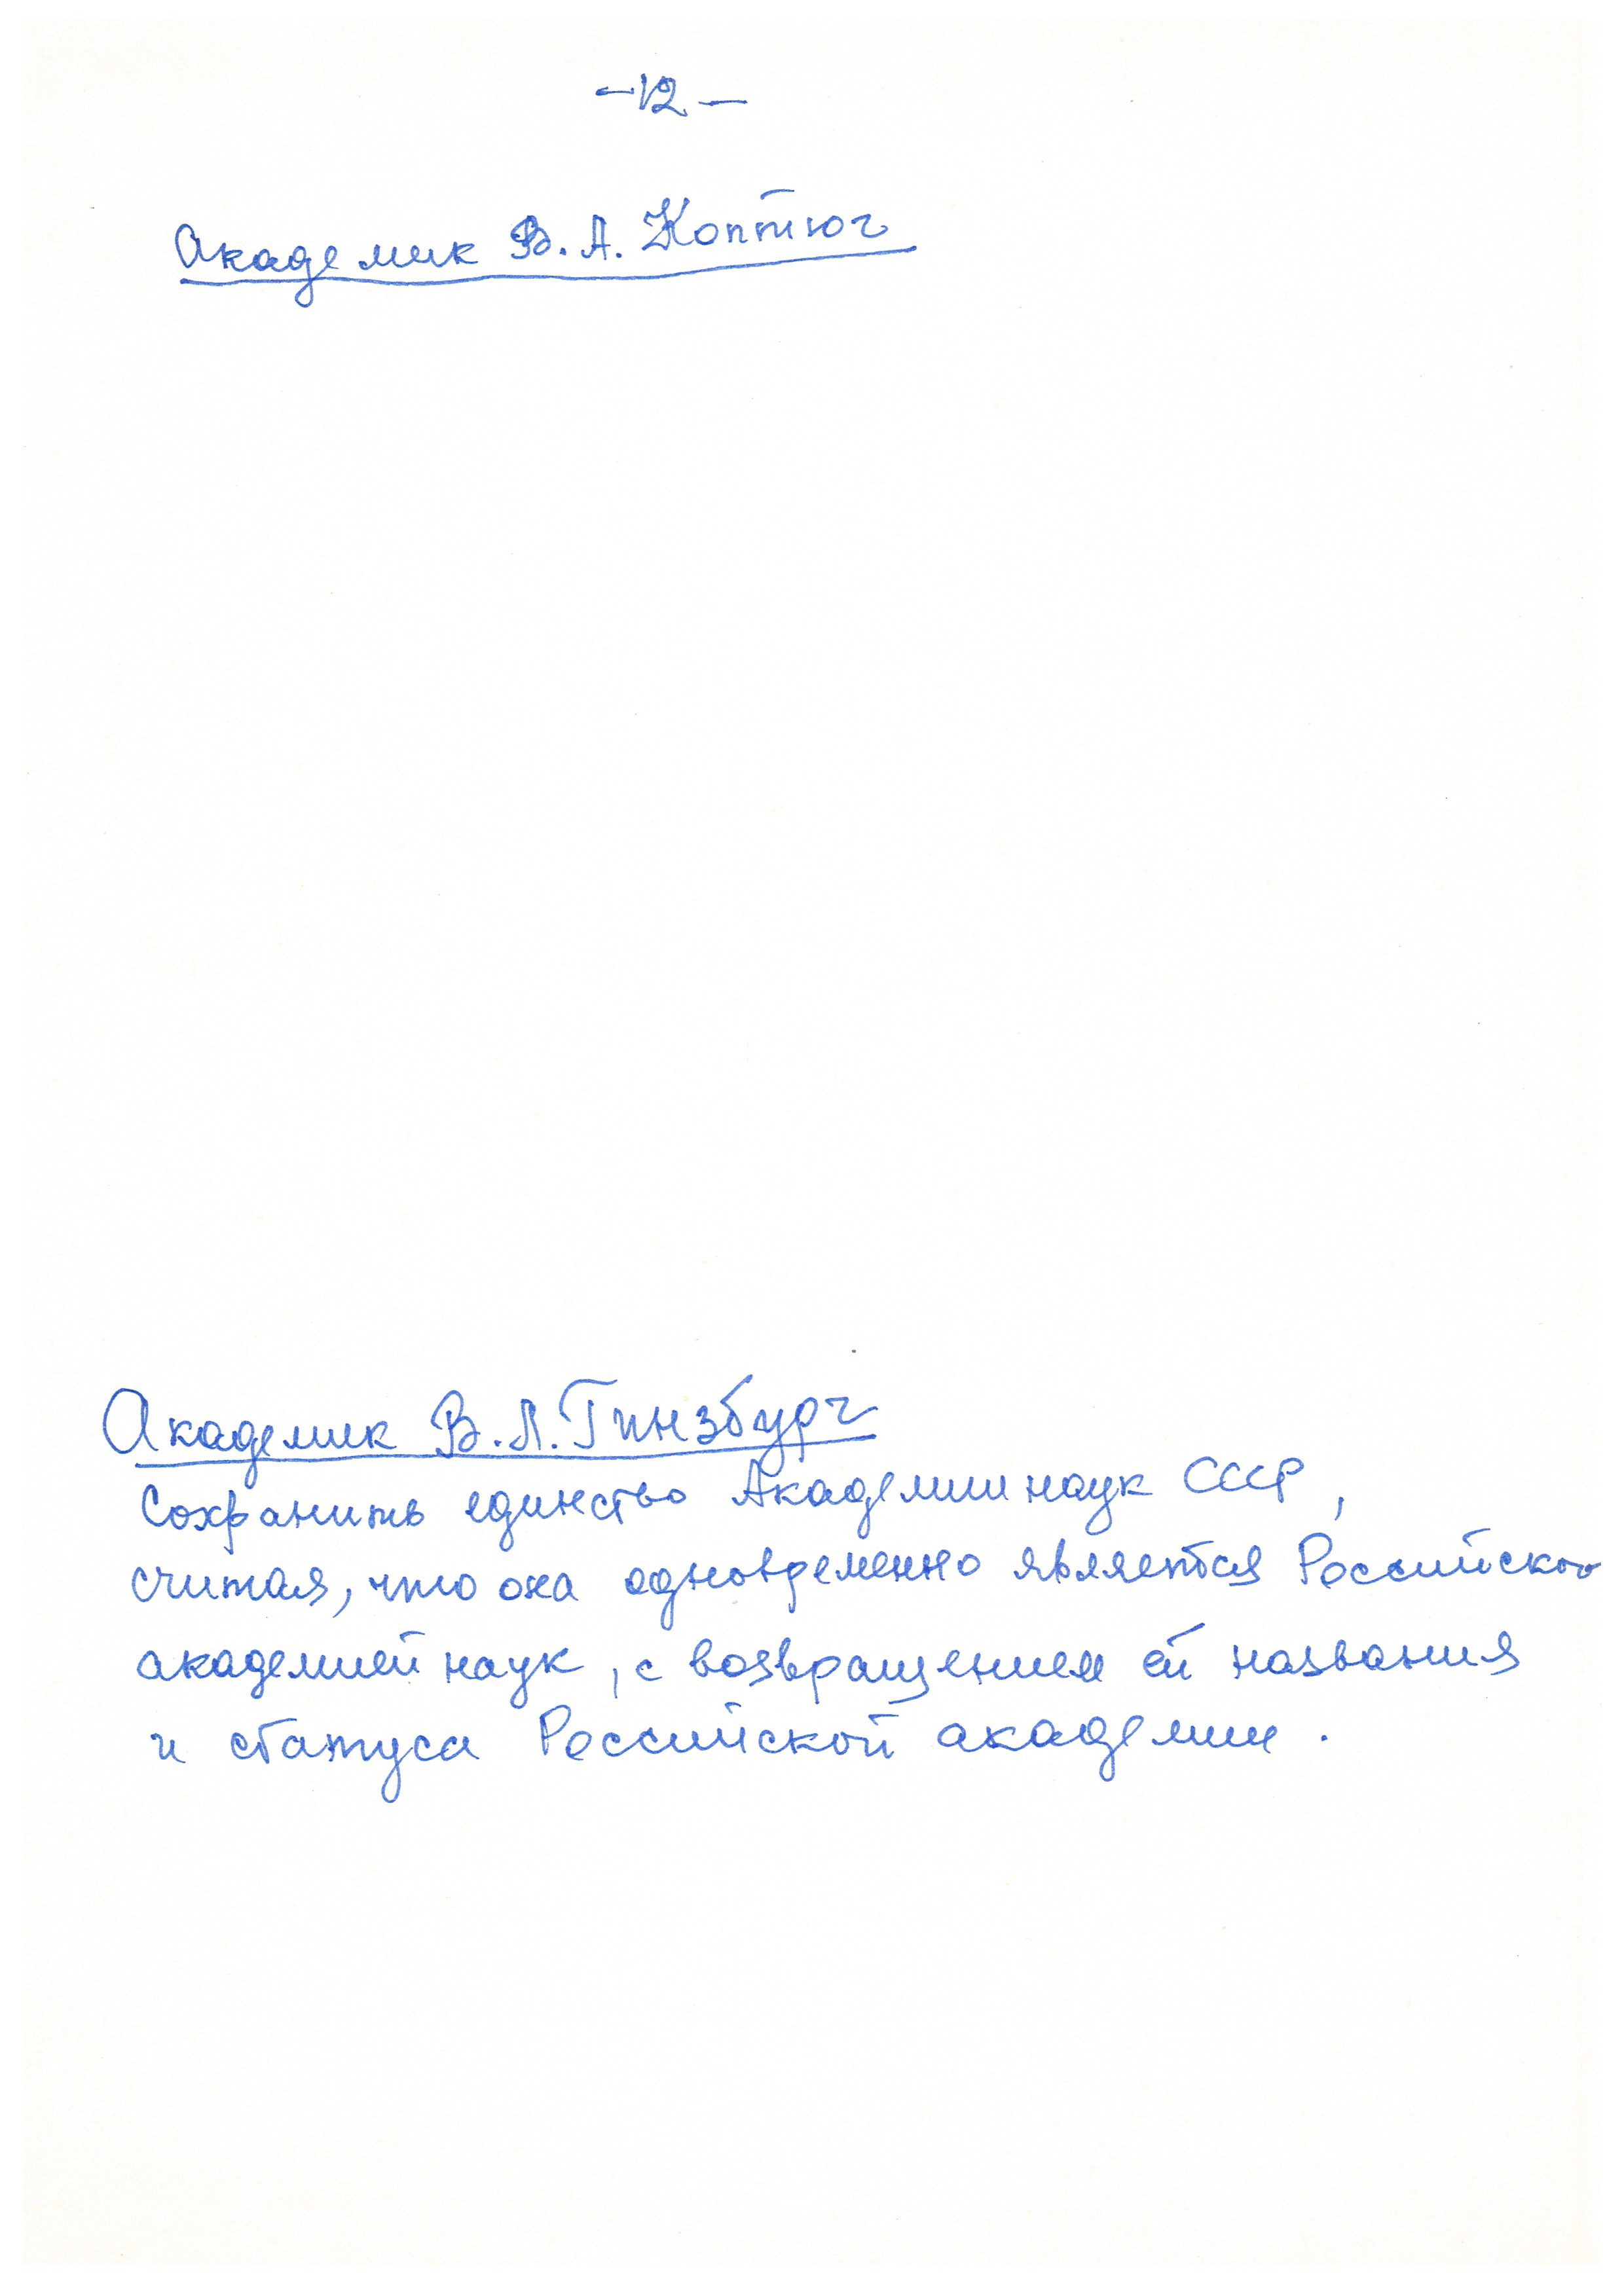 -12-
Академик В. А. Коптюг
Академик В. Л. Гинзбург
Сохранить единство Академии наук СССР,
считая, что она одновременно является Российской
академией наук, с возвращением ей названия
и статуса Российской академии.